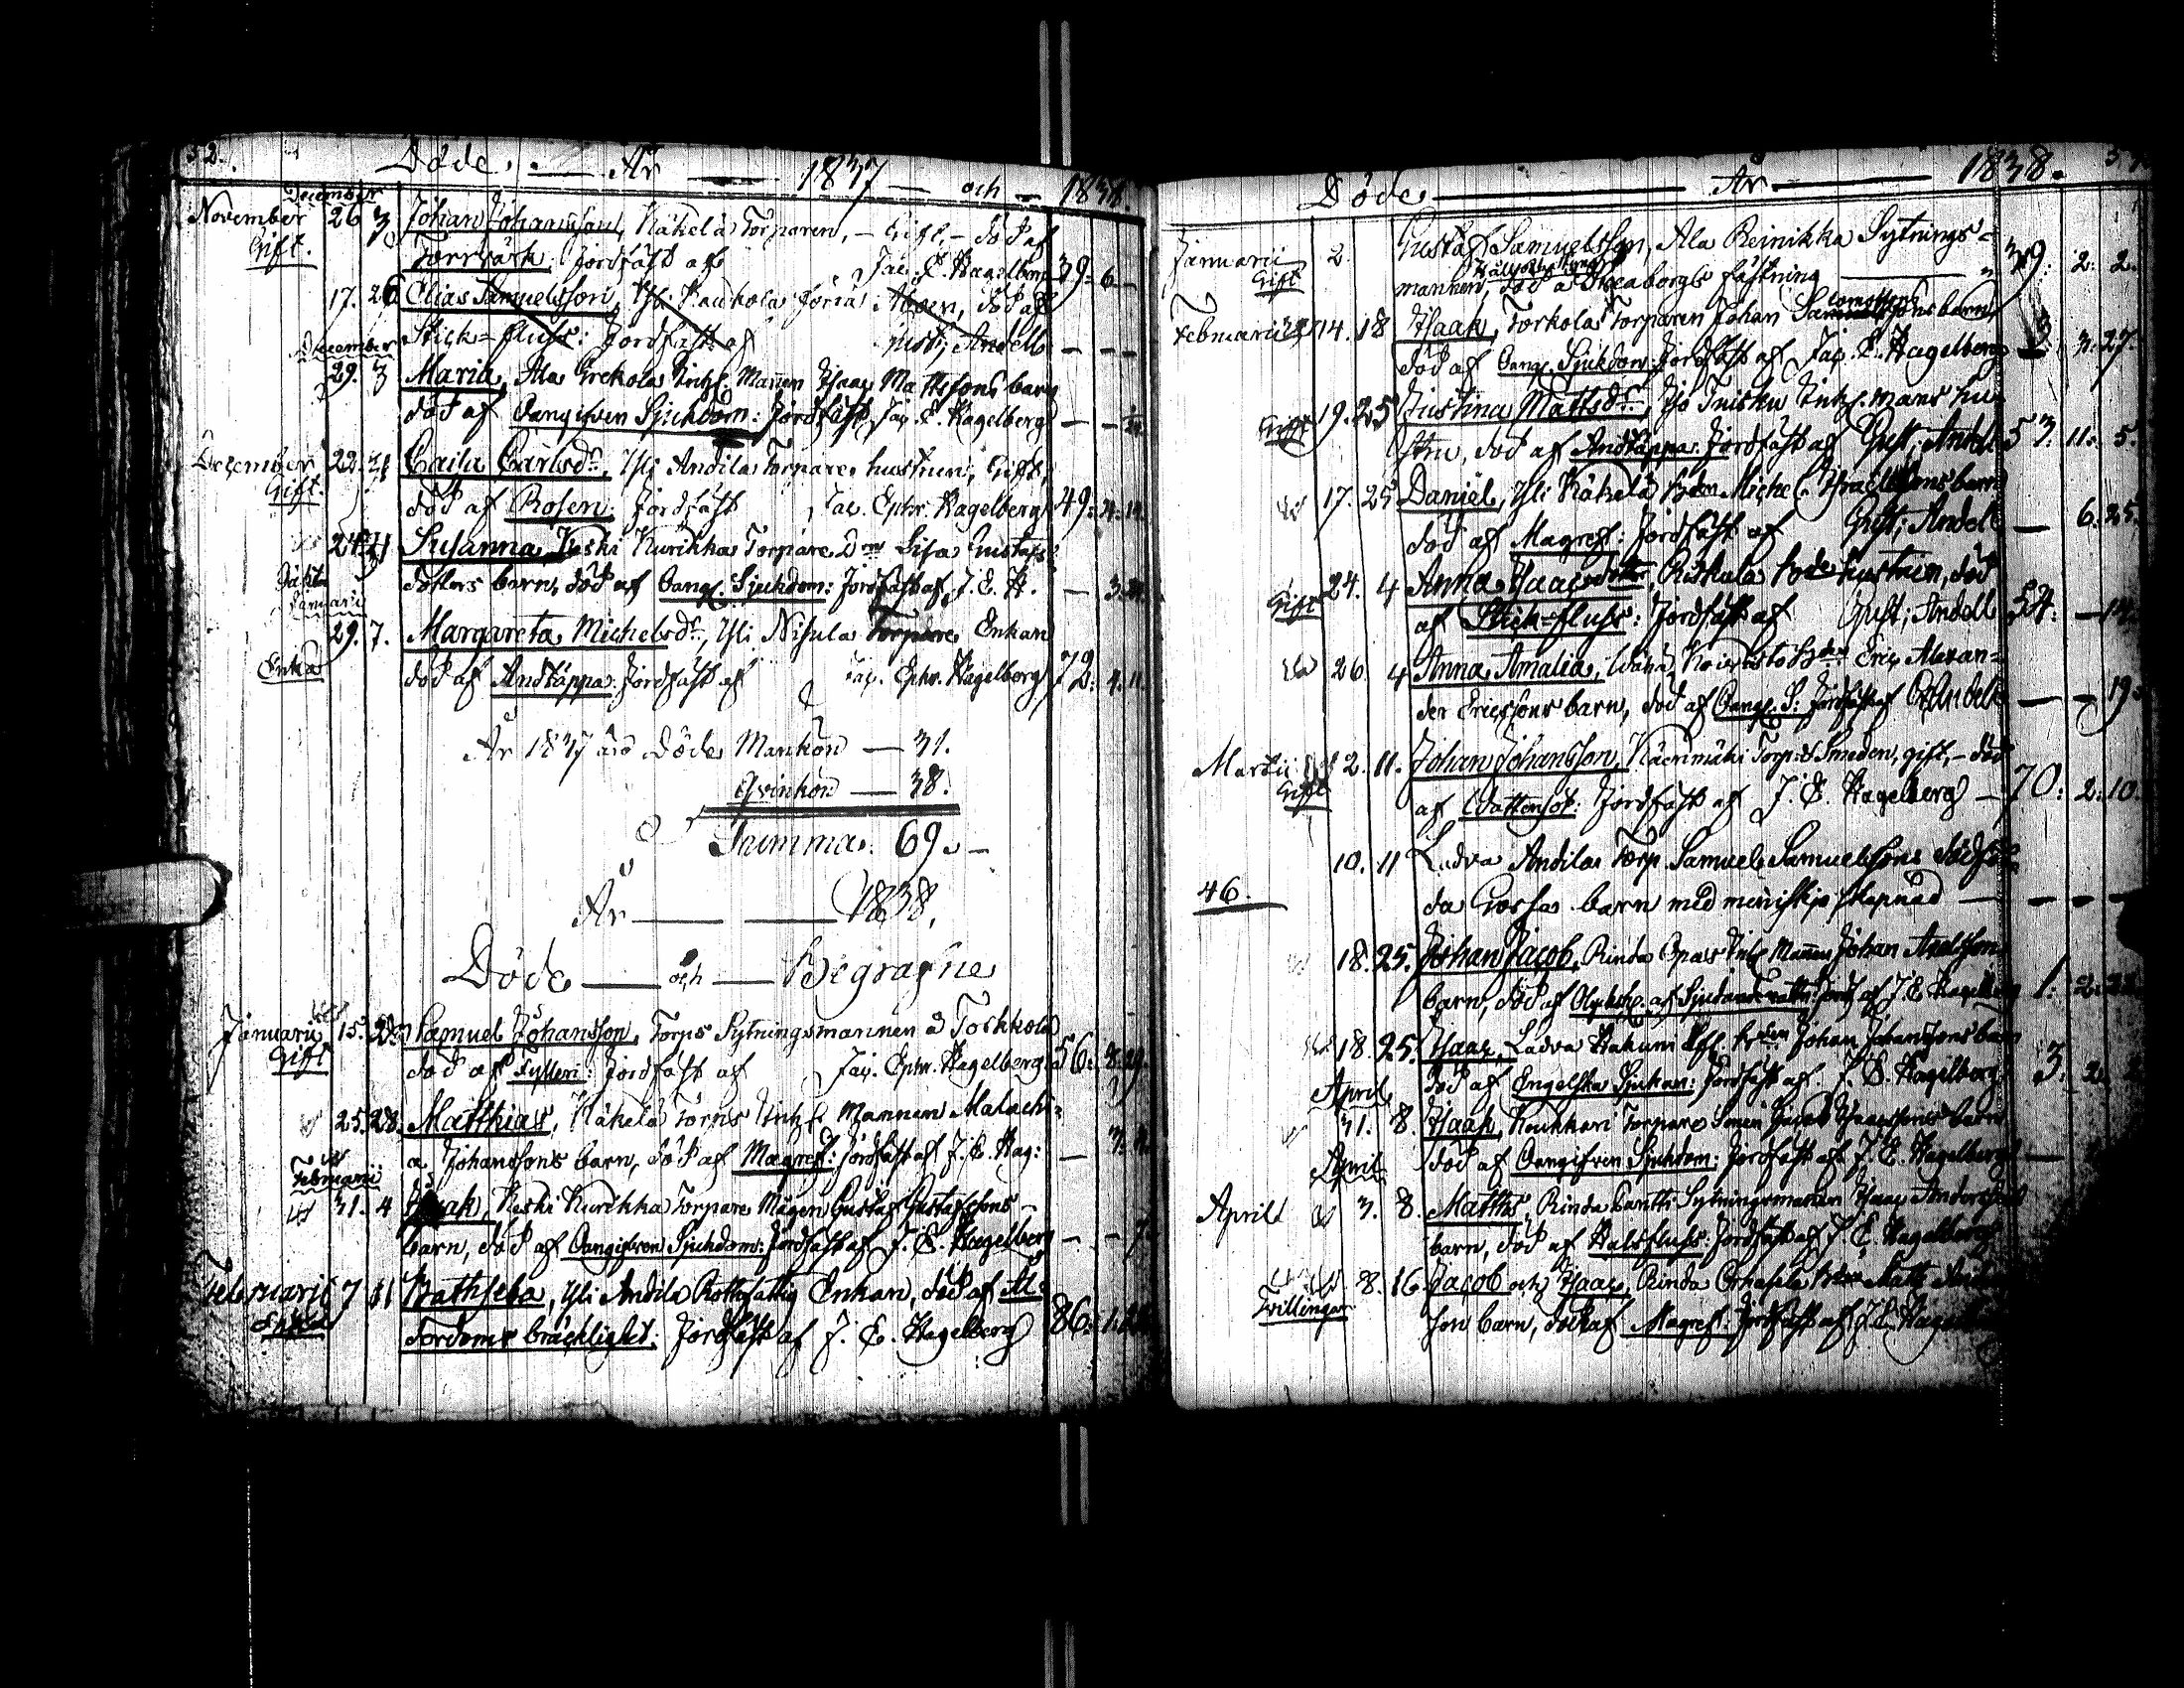 52.
Döde. — År — 1837 — och — 1838.
December
November 26 3 Johan Johansson, Näkelä Torparen, — Gift, — död af
Gift. Torrvärk: Jordfäst af Jac. E. Hagelberg 39. 6. —
17. 26 Elias Samuelsson, Yli Kaukola död af
Stick-fluss: Jordfäst af Gust; Andell — — —
December
29. 3 Maria, Ala Grekola Inh. Mannen Isaac Mattssons barn
död af Oangifven Sjukdom: Jordfäst, Jac. E. Hagelberg — —
December 22. 31 Caisa Carlsdr, Yli Andila Torpare hustrun, Gift,
Gift. död af Rosen: Jordfäst Jac. Ephr. Hagelberg 49.
24 21 Susanna, Keski Kurikka Torpare Dr Lisa Gustafs
dotters barn, död af Oangf. Sjukdom: Jordfäst af J. E. H. — 3.
Januarii
29. 7. Margareta Michelsdr, Yli Nisula Torpare Enkan
Enka död af Andtäppa: Jordfäst af Jac. Ephr. Hagelberg 72. 4. 11.
År 1837 äro Döde Mankön — 31.
Qvinkön — 38.
Summa. 69. —
År — — 1838.
Döde — och — Begrafne
Januarii 15. Samuel Johansson, Torps Sytningsmannen å Torkkola
Gift död af Fylleri: Jordfäst af Jac. Ephr. Hagelberg 56. 8. 29.
25. 28. Matthias, Näkelä Torps Inh. Mannen Malachi-
a Johanssons barn, död af Magref: Jordfäst af J. E. Hag: —
Februarii
31. 4 Isaak, Keski Kurikka Torpare Mågen Gustaf Gustafssons
barn, död af Oangifven Sjukdom: Jordfäst af J. E. Hagelberg — — 7.
Februarii 7 11 Bathseba, Yli Andila Rottefattig Enkan, död af Ål-
Enka derdoms bräcklighet: Jordfäst af J. E. Hagelberg 86.
Döde — År — 1838.
Januarii 2. Gustaf Samuelsson, Ala Reinikka Sytnings-
Gift mannen, död å Sveaborgs fästning — 39. 2. 2.
Februarii 14. 18 Isaak, Torkola Torparen Johan barn
död af Oangf. Sjukdom: Jordfäst af Jac. E. Hagelberg 3. 27.
Gift 19. 25 Justina Mattsdr, Iso Tuisku Inh. mans hu-
stru, död af Andtäppa: Jordfäst af Gust; Andell 53. 11. 5.
17. 25 Daniel, Yli Näkelä Michel Israelssons barn
död af Magref: Jordfäst af Gust; Andell — 6. 25.
Gift 24. 4 Anna Isaacsdotter, Riskala hustrun, död
af Stick-fluss: Jordfäst af Gust; Andell 54. — 14.
26 4 Anna Amalia, Eric Alexan-
der Ericssons barn, död af Oangf. S: Jordfäst af G. Andell — — 19.
Martii 2. 11. Johan Johansson, Käenmäki Torp: Smeden, gift, — död
Gift af Wattensot: Jordfäst af J. E. Hagelberg — 70. 2. 10.
10. 11 Ladva Andila Torp. Samuel Samuelssons dödföd-
46. da Gosse barn med meniskjo skapnad — — — —
18. 25. Johan Jacob, Rinda Opas Inh Mannen Johan Axelsson
barn, död af af J E Hagelberg 1. 2.
18. 25. Isaac, Ladva Hakuni Johan Johanssons barn
död af Engelska Sjukan: Jordfäst af J. E. Hagelberg 3. 2. 2
April
31. 8. Isaak, Koukkari Torpare Isaacssons barn
död af Oangifven Sjukdom: Jordfäst af J. E. Hagelberg —
April
April 3. 8. Matths, Rinda Sytningsmannen Isaac Andersson
barn, död af Halsfluss: Jordfäst af J E Hagelberg
8. 16. Jacob och Isaac, Rinda Matts Anders
Tvillingar. son barn, död af Magref: Jordfäst af J. E. Hagelberg